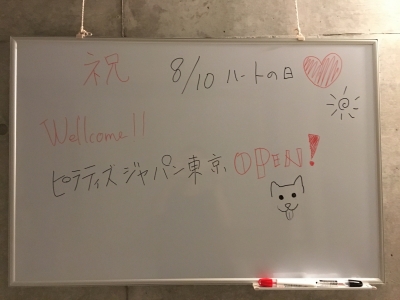 祝 8/10 ハートの日
Wellcome!!
ピラティスジャパン東京 OPEN!